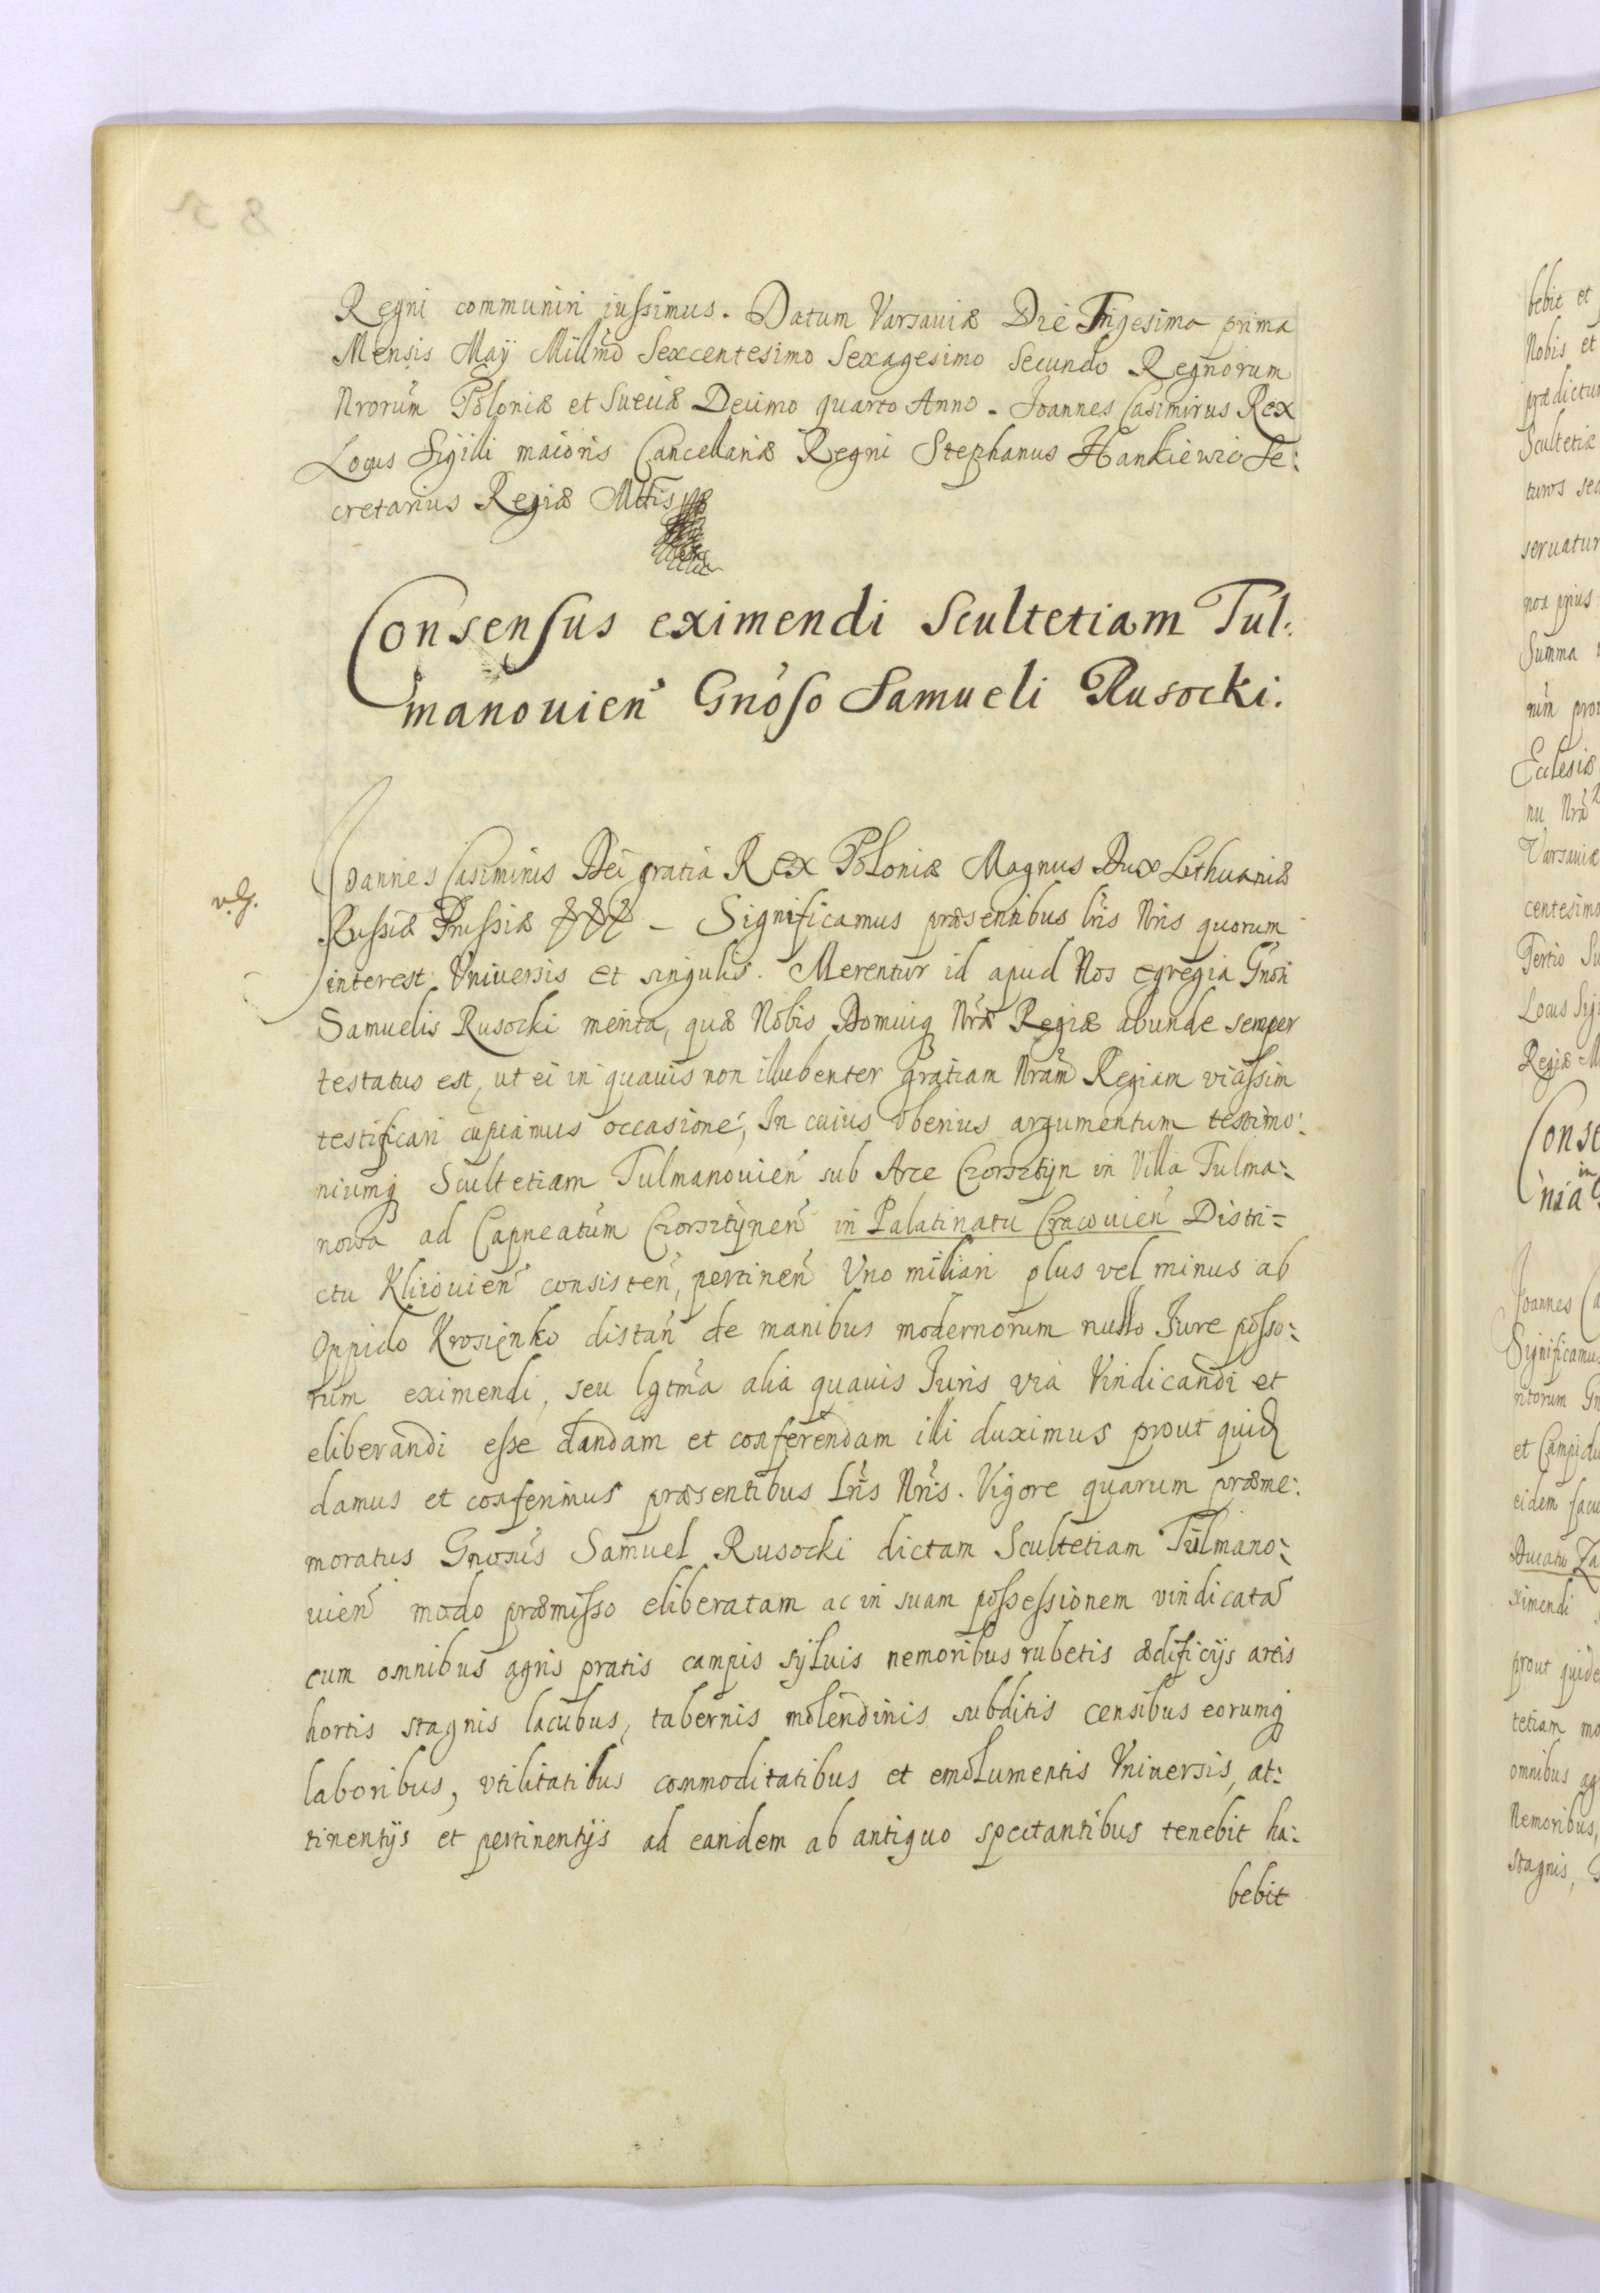 Regni communiri iussimus. Datum Varsaviæ Die Trigesima prima
Mensis Maÿ Millmo Sexcentesimo Sexagesimo Secundo Regnorum
Nrorum Poloniæ et Sueciæ Decimo quarto Anno. Joannes Casimirus Rex
Locus Sigilli maioris Cancellariæ Regni Stephanus Hankiewic Se:
cretarius Regiæ Mttis
Consensus eximendi Scultetiam Tul:
manouien Gnoso Samueli Rusocki.
Joannes Casimirus Dei gratia Rex Poloniæ Magnus Dux Lithuaniæ
Russiæ Prussiæ &&& – Significamus præsentibus lris Nris quorum
interest Vniversis et singulis. Merentur id apud Nos egregia Gnosi
Samuelis Rusocki merita, quæ Nobis Domuiq Nræ Regiæ abunde semper
testatus est, ut ei in quauis non illubenter gratiam Nram Regiam viassim
testificari cupiamus occasione, In cuius vberius argumentum testimo:
niumq Scultetiam Tulmanouien sub Arce Czorsztÿn in Villa Tulma:
nowa ad Capneatum Czorsztÿnen in Palatinatu Cracouien Distri=
ctu Kliiouien consisten, pertinen Vno miliari plus vel minus ab
Oppido Krosienko distan de manibus modernorum nullo Jure posso:
rum eximendi, seu lgtma alia quauis Juris via Vindicandi et
eliberandi esse dandam et conferendam illi duximus prout quid
damus et conferimus præsentibus Lris Nris. Vigore quarum præme:
moratus Gnosus Samuel Rusocki dictam Scultetiam Tulmano:
uien modo præmisso eliberatam ac in suam possessionem vindicata
cum omnibus agris pratis campis sÿluis nemoribus rubetis ædificijs areis
hortis stagnis lacubus, tabernis molendinis subditis censibus eorumq
laboribus, vtilitatibus commoditatibus et emolumentis Vniversis, at:
tinentijs et pertinentijs ad eandem ab antiquo spectantibus tenebit ha:
bebit